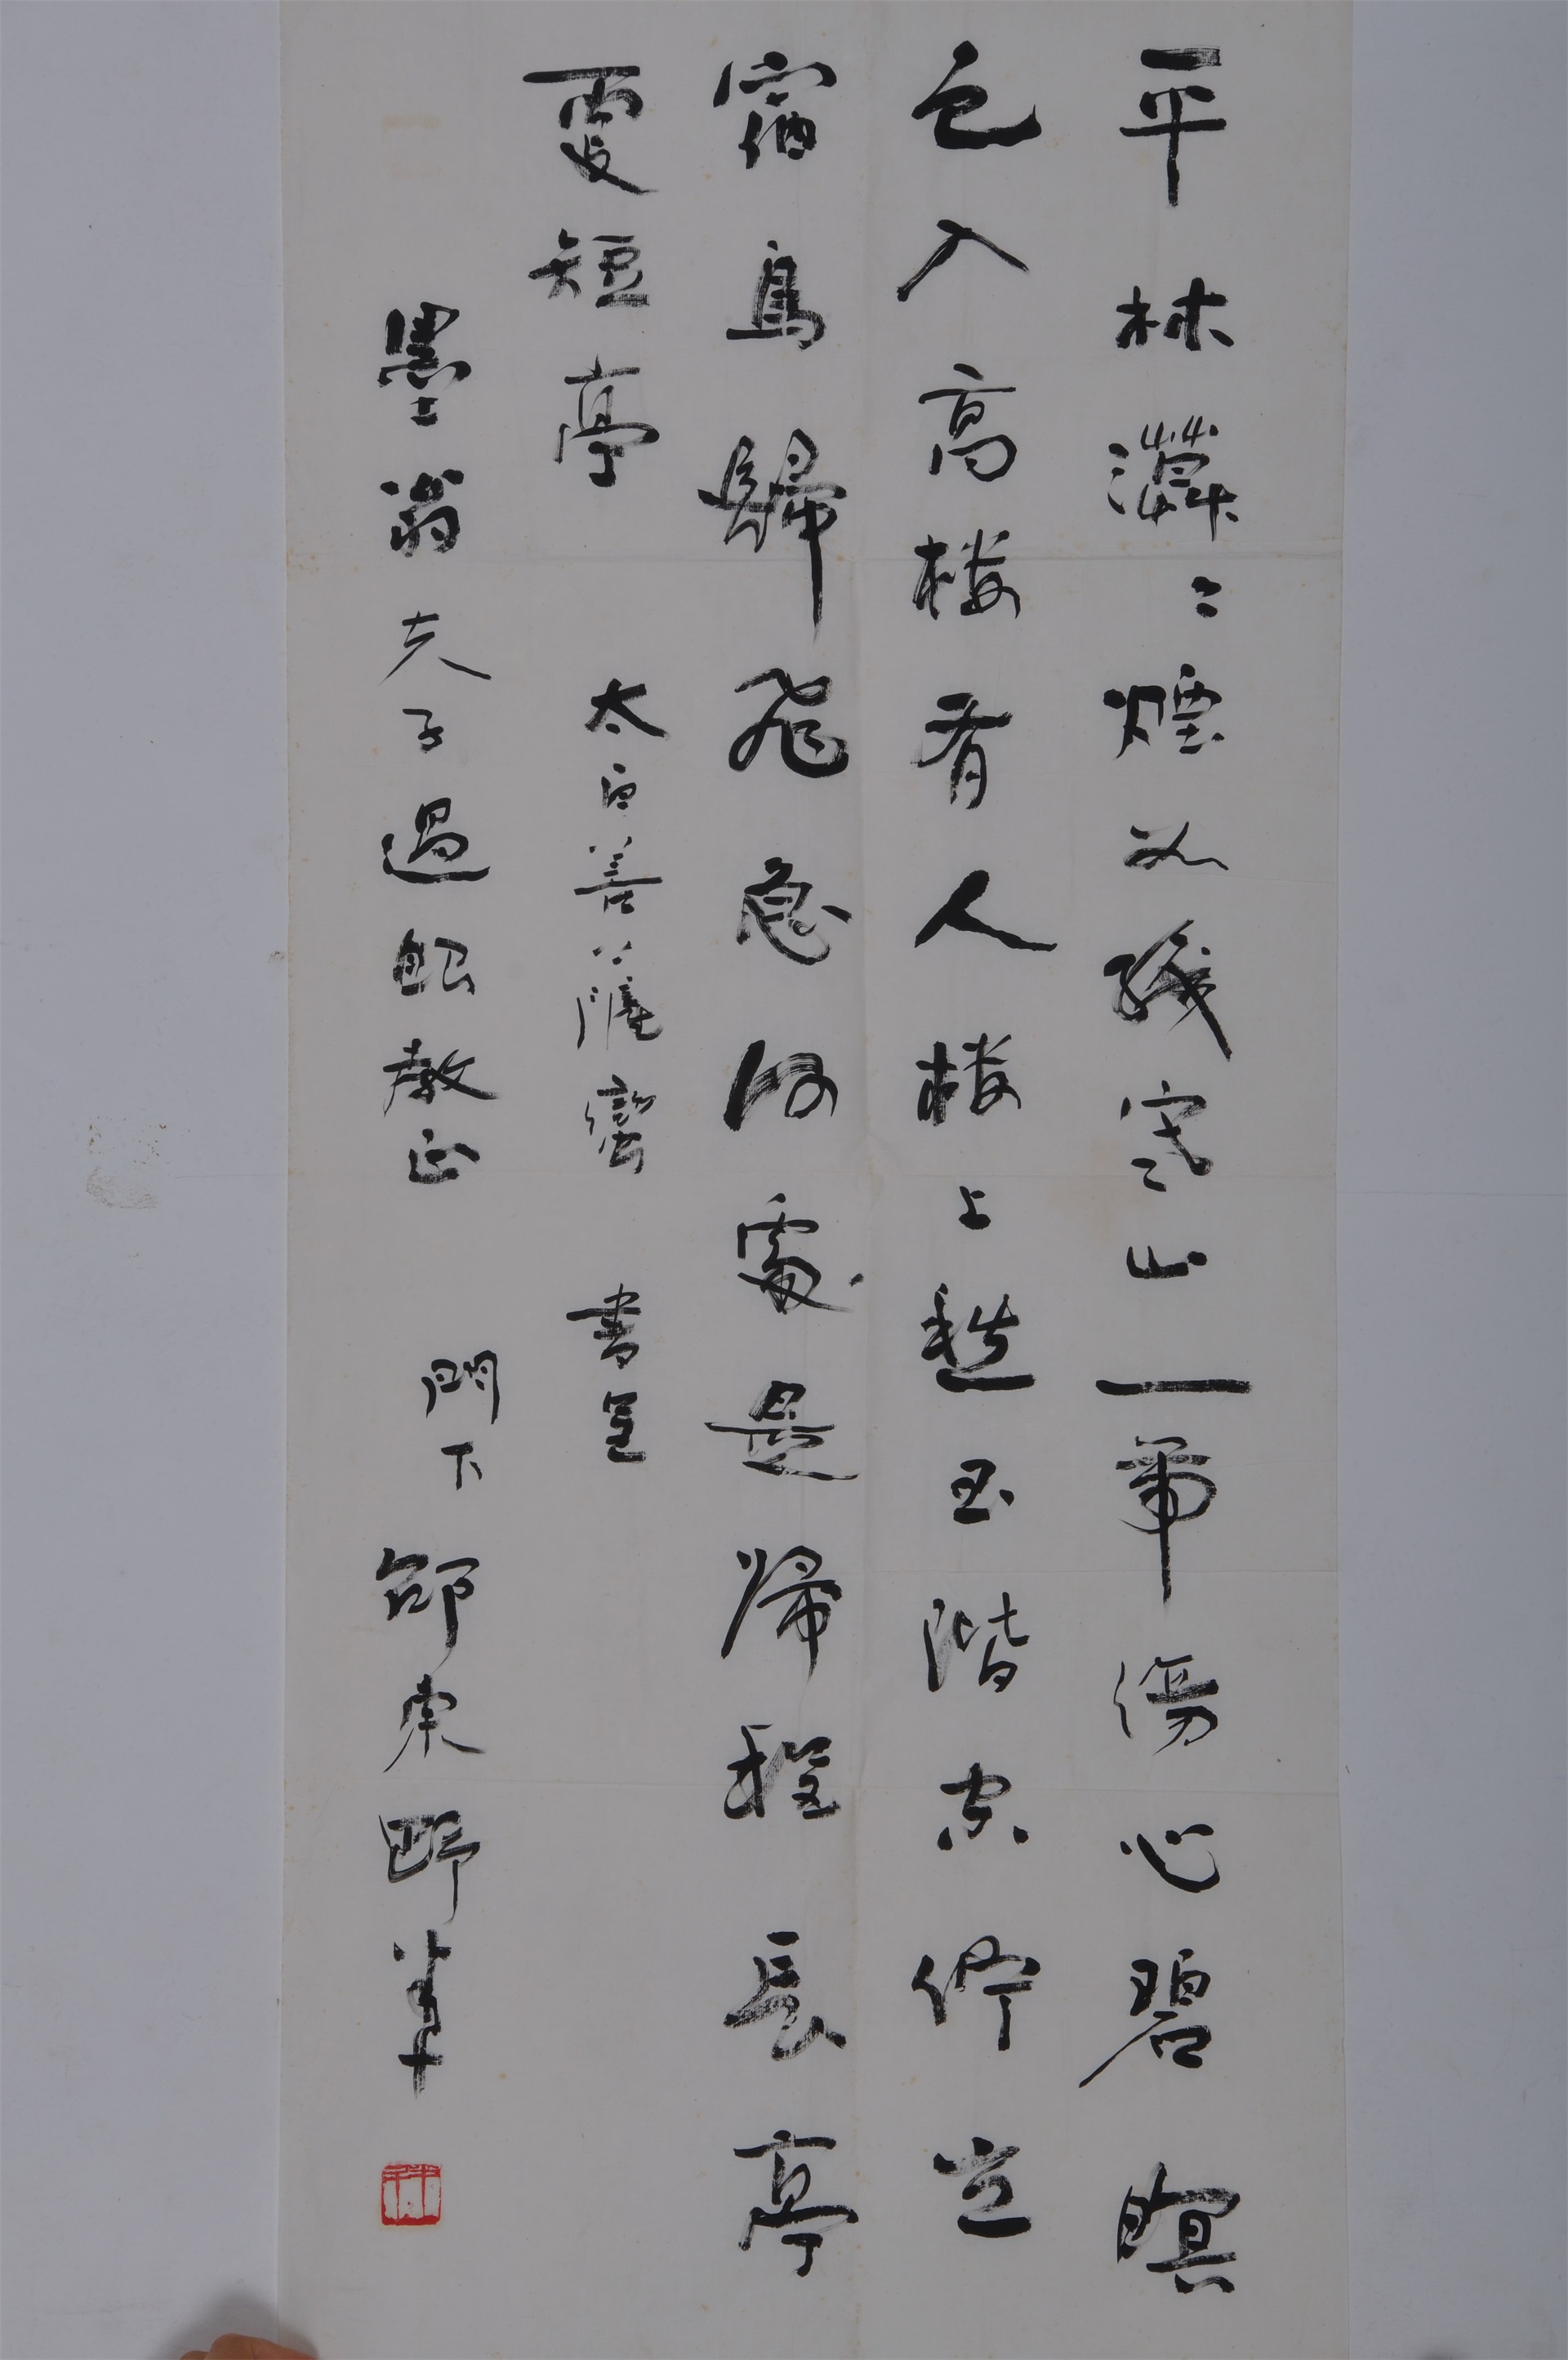 平林漠〻煙如織寒山一帶傷心碧暝
色入高樓有人樓上愁玉階空佇立
宿鳥歸飛急何處是歸程長亭
更短亭 太白菩薩蠻 書呈
墨翁夫子過眼教正 門下 邵東野筆